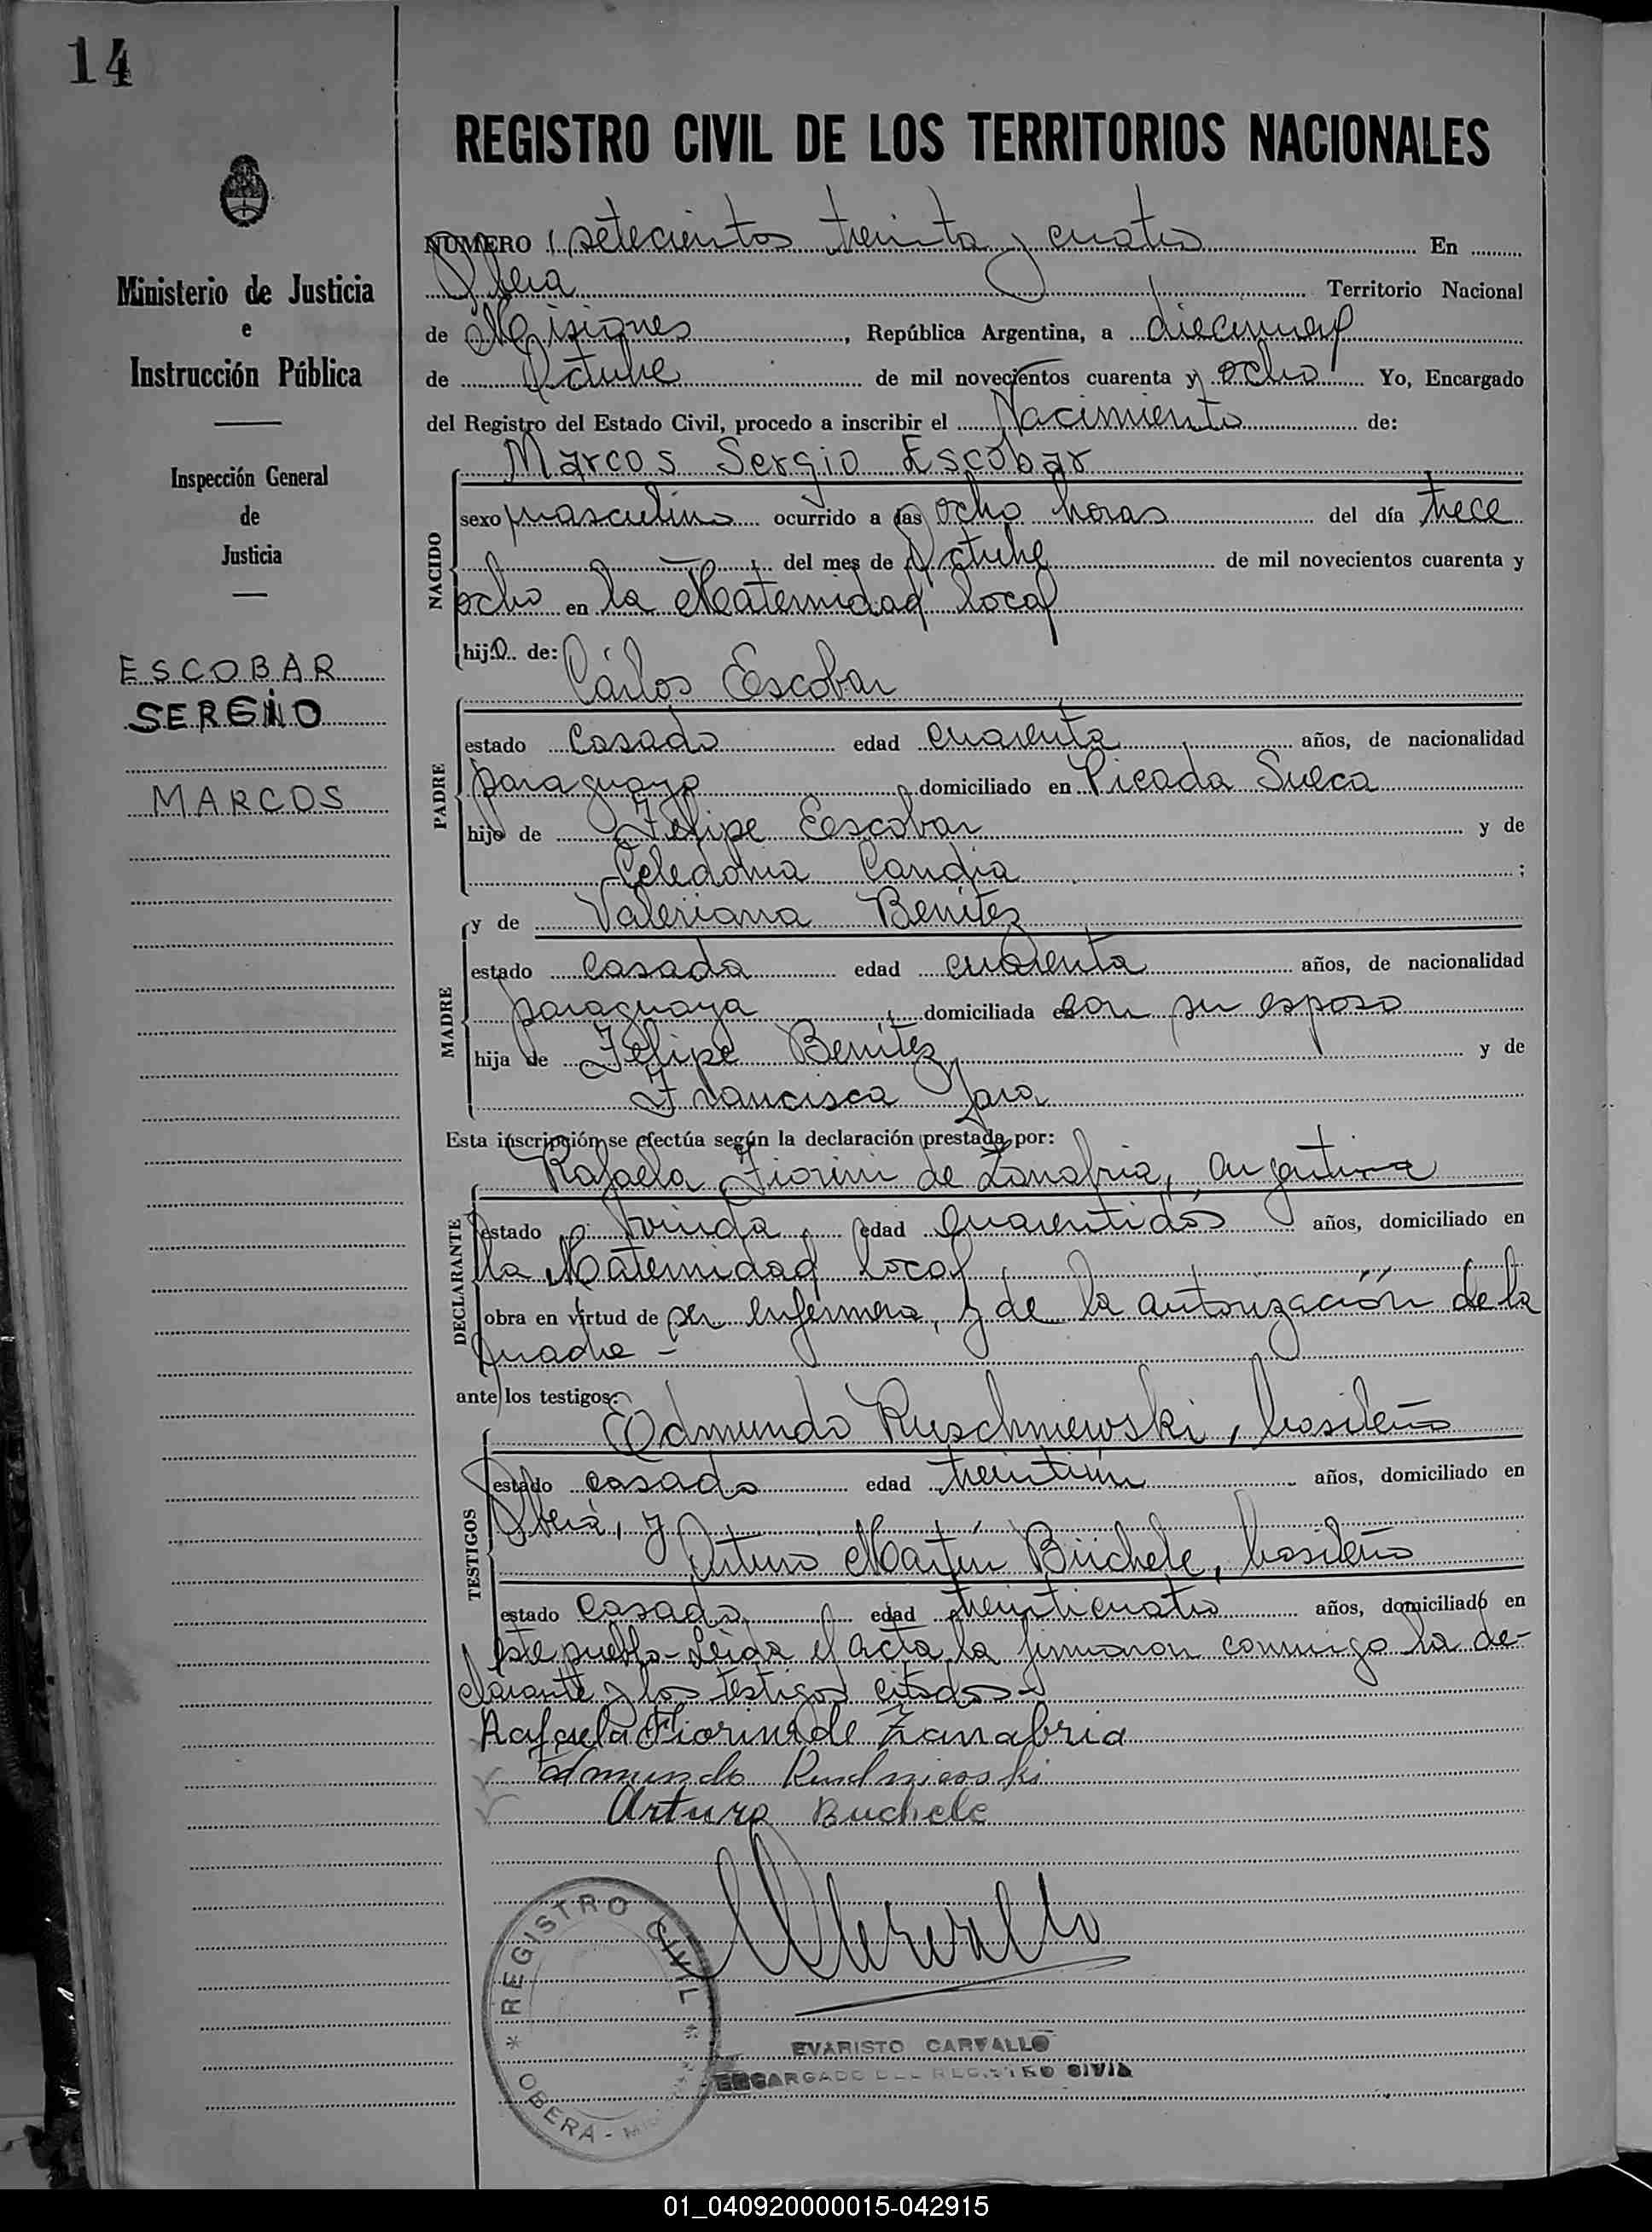 14
REGISTRO CIVIL DE LOS TERRITORIOS NACIONALES
NUMERO setecientos treinta y cuatro En
Oberá Territorio Nacional
de Misiones, República Argentina, a diecinueve
de Octubre de mil novecientos cuarenta y ocho Yo, Encargado
del Registro del Estado Civil, procedo a inscribir el Nacimiento de:
Marcos Sergio Escobar
NACIDO
sexo masculino ocurrido a las ocho horas del día trece
del mes de Octubre de mil novecientos cuarenta y
ocho en la Maternidad local
hijo de:
Cárlos Escobar
PADRE
estado casado edad cuarenta años, de nacionalidad
paraguaya domiciliado en Picada Sueca
hijo de Felipe Escobar y de
Celedonia Candia ;
y de Valeriana Benítez
MADRE
estado casada edad cuarenta años, de nacionalidad
paraguaya, domiciliada con su esposo
hija de Felipe Benítez y de
Francisca Jara
Esta inscripción se efectúa según la declaración prestada por:
Rafaela Fiorini de Zanabria, argentina
DECLARANTE
estado viuda edad cuarentidós años, domiciliado en
la Maternidad local
obra en virtud de ser enfermera, y de la autorización de la
madre -
ante los testigos:
Edmundo Ruschniewski, brasileño
TESTIGOS
estado casado edad treintiún años, domiciliado en
Oberá, y
Arturo Martín Büchele, brasileño
estado casado edad treinticuatro años, domiciliado en
este pueblo - Leída el acta, la firmaron conmigo la de-
clarante y los testigos citados -
Rafaela Fiorini de Zanabria
Edmundo
Arturo Buchele
REGISTRO CIVIL
OBERA -
EVARISTO CARVALLO
ENCARGADO DEL REGISTRO CIVIL
Ministerio de Justicia
e
Instrucción Pública
Inspección General
de
Justicia
ESCOBAR
SERGIO
MARCOS
01_040920000015-042915